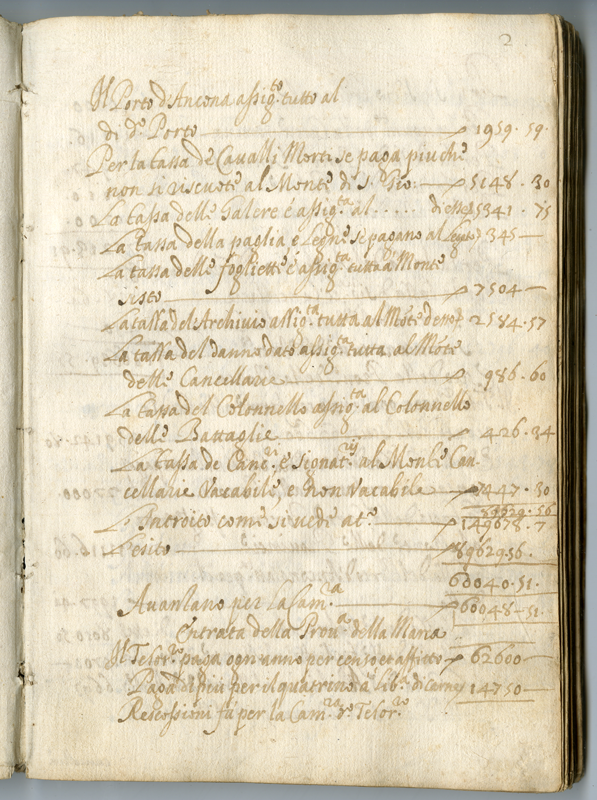 2
Il Porto d'Ancona assig.to tutto al
di d.o Porto — 1959. 59.
Per la tassa de Cavalli Morti se paga piu che
non si riscuote al Monte di S. Gio: — 5148. 30
La tassa delle Galere é assig.ta al ..... 5341. 75
La tassa della paglia e Legne se pagano al 345 —
La tassa delle fogliette é assig.ta tutta a Monte
sisto — 7504 —
La tassa del Archivio assig.ta tutta al Mõte 2584. 57
La tassa del danno dato assig.ta tutta al Mõte
delle Cancellarie — 986. 60
La tassa del Colonnello assig.ta al Colonnello
delle Battaglie — 426. 34
La tassa de Canc.ri e signat.rij al Monte Can-
cellarie Vacabile, e non Vacabile — 7447. 30
89629. 56
L'Introito come si vede at.o — 149678. 7
L'esito — 89629. 56.
60040. 51.
Avanzano per la Cam.ra — 60048 - 51.
Entrata della Prou.a della Marca
Il Tesor.ro paga ogn anno per censo et affitto — 62600 —
Paga di piu per il quatrino á lib.a di carne 14750 —
Rescossioni fá per la Cam.ra d.o Tesor.ro